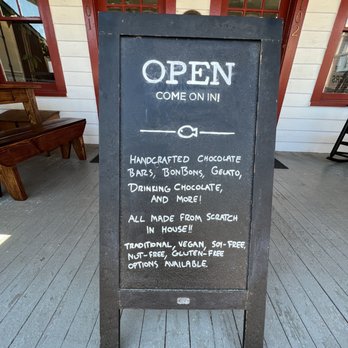 OPEN
COME ON IN!
HANDCRAFTED CHOCOLATE
BARS, BONBONS, GELATO,
DRINKING CHOCOLATE,
AND MORE!
ALL MADE FROM SCRATCH
IN HOUSE!!
TRADITIONAL, VEGAN, SOY-FREE,
NUT-FREE, GLUTEN-FREE
OPTIONS AVAILABLE.